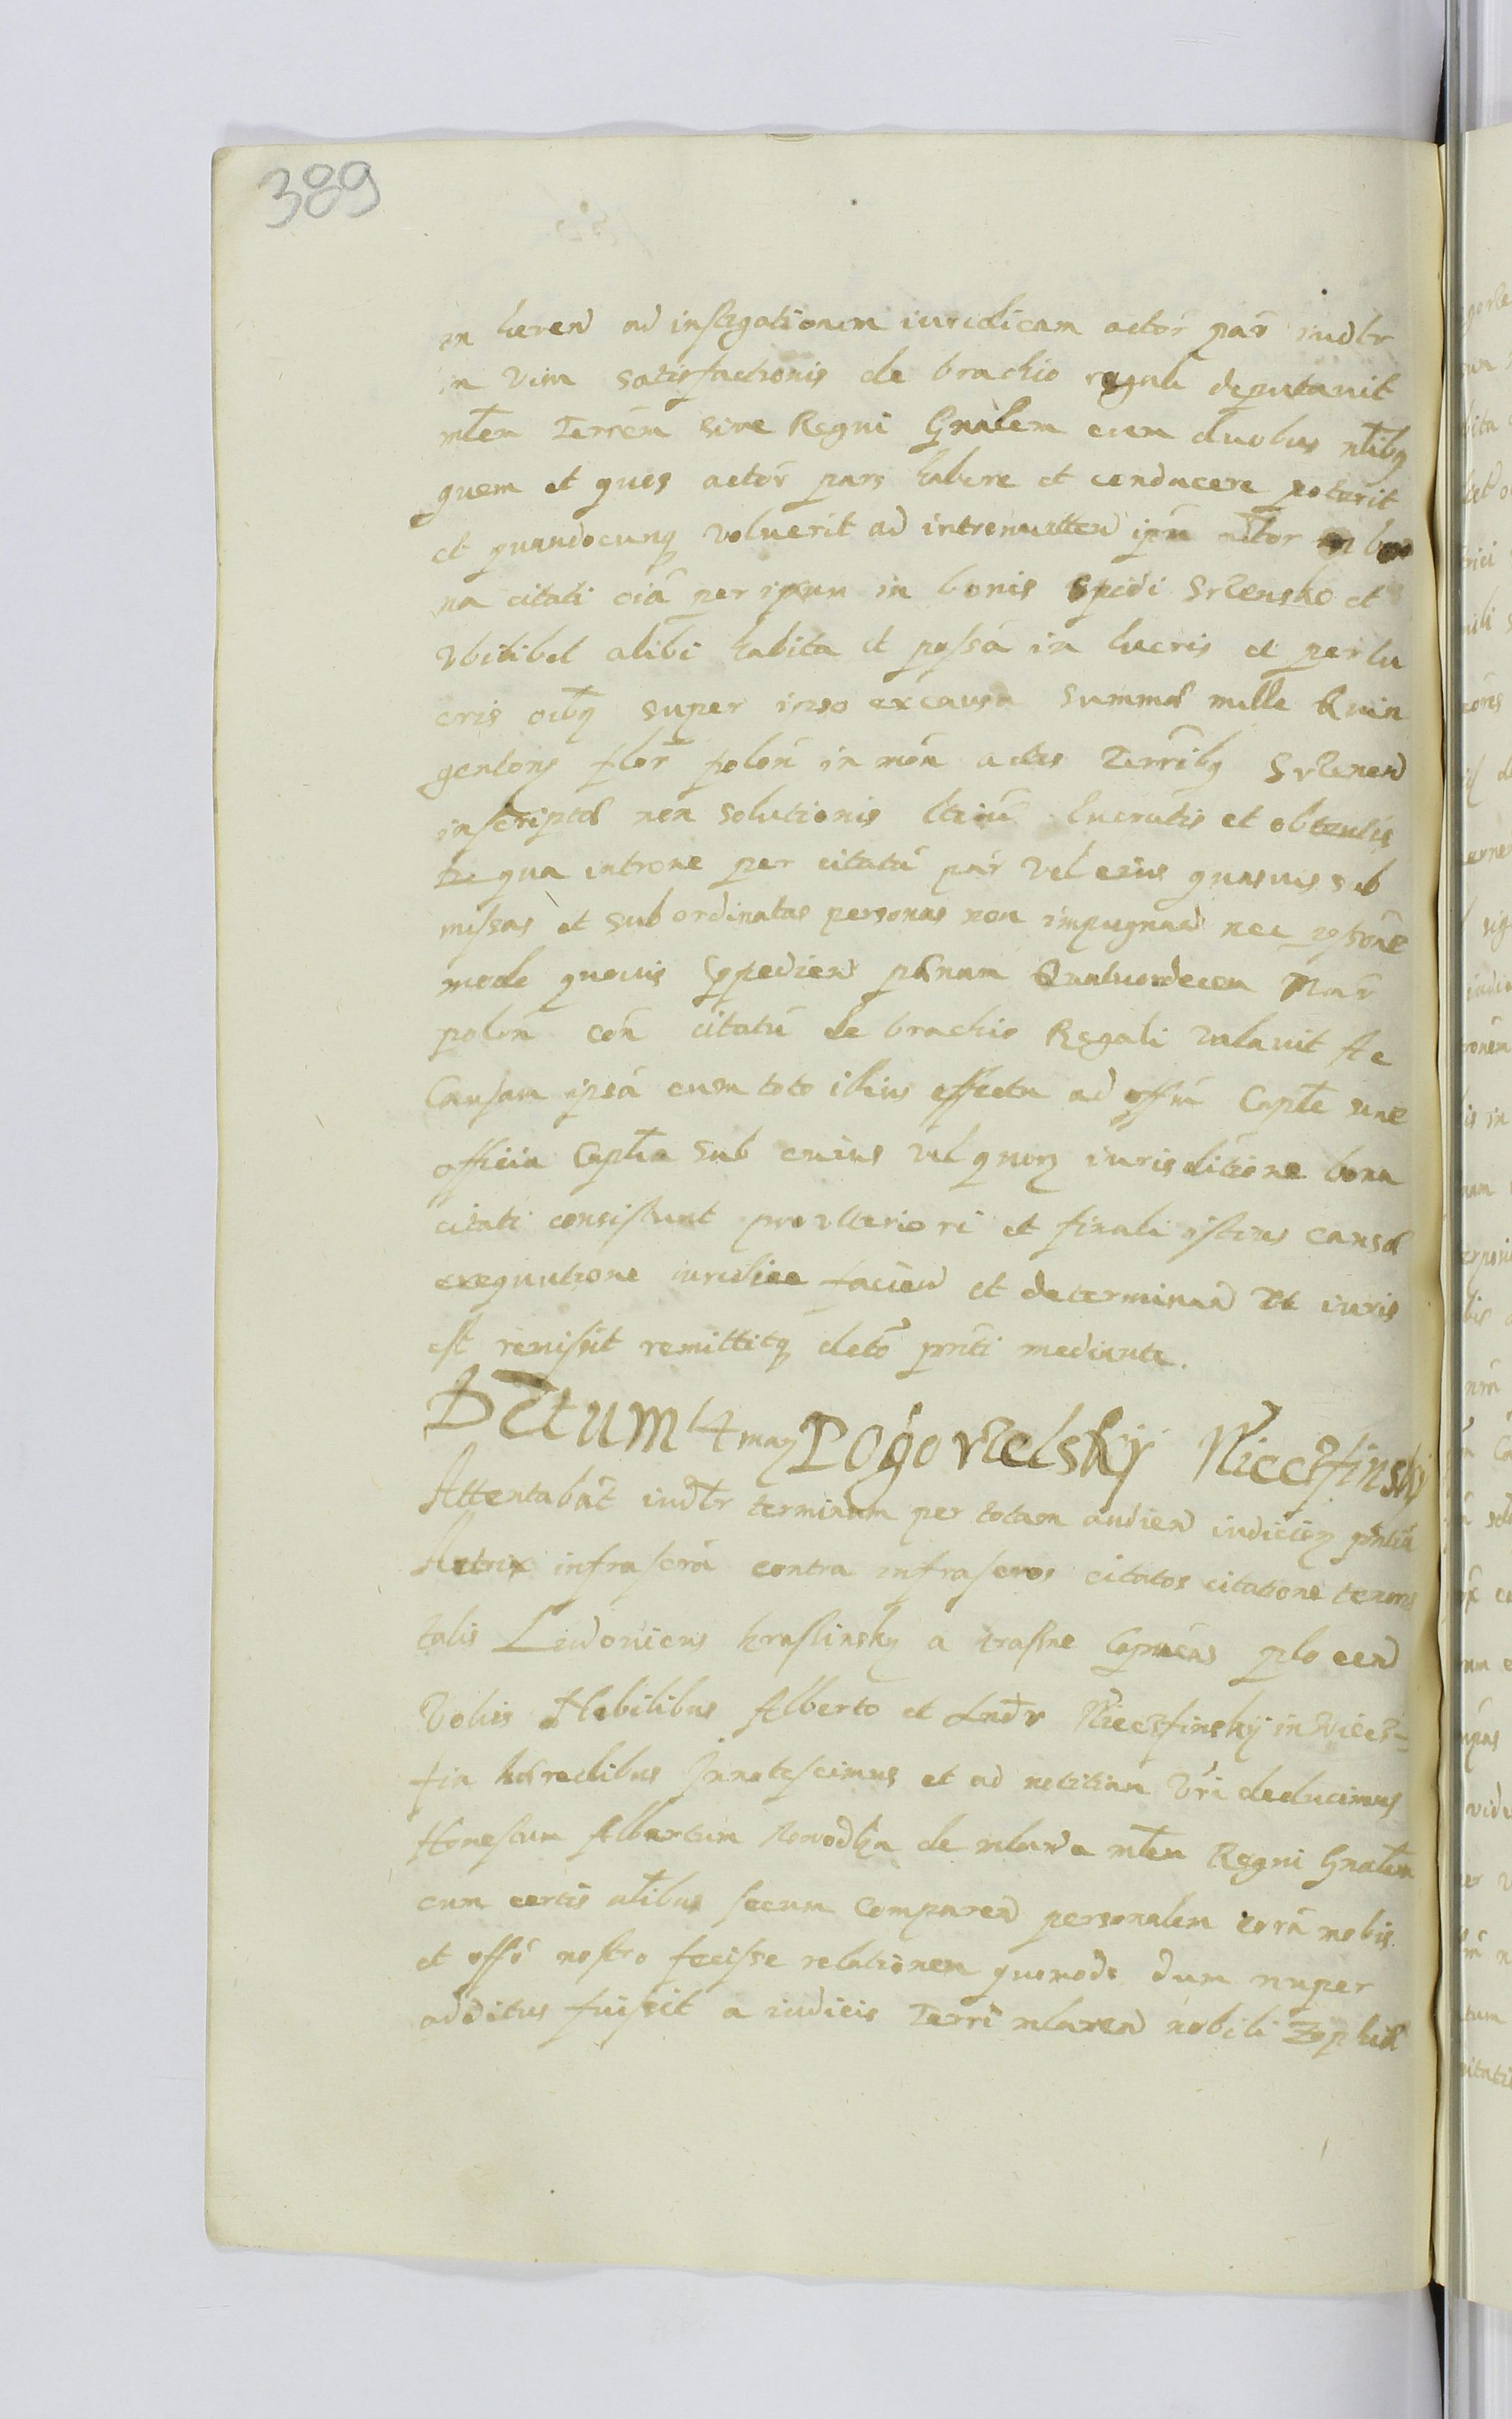 389
in heren ad instigationem iuridicam actor par iudlr
in vim satisfactionis de brachio regali deputavit
mlem Terrem sive Regni Gnalem cum duobus nlibq
quem et quos actor pars habere et conducere poterit
et quandocunq voluerit ad intromitten ipm actor in bo
na citati oia per ipsum in bonis Srzensko et
Vbilibet alibi habita et possa in lucris et perlu
cris oibq super ipso ex causa Summæ mille Quin
gentorz flor polon in mon actis Terribq Srzenen
inscriptæ non solutionis lucratis et obtentis
qua introne per citatu par vel eius quasvis sub
missas et sub ordinatas personas non impugnan nec
modo quovis pænam Quatuordecem Mar
polon con citatu de brachio Regali valavit Ac
Causam ipsa cum toto illius effectu ad offm Capte sive
officia Capta sub cuius vel quorz iurisditione bona
citati consistunt pro vlteriori et finali istius causæ
exequutione iuridice facien et determinan vt iuris
est remisit remittitq deto pnti mediante.
Dctum 14 may Pogorzelsky Nieczfinsky
Attentabat iudlr terminum per totam audien iudicior pntia
Actrix infrascra contra infrascros citatos citatione tenoris
talis Ludovicus krassinsky a crasne Capneus plocen
Vobis Nobilibus Alberto et Andr Nieczfinsky in Niecz-
fin hæredibus Innotescimus et ad notitiam Vri deducimus
Honestum Albertum de mlawa mlem Regni Gnalem
cum certis nlibus secum comparen personalem cora nobis
et offo nostro fecisse relationem quomodo dum nuper
additus fuissit a iudicis Terri mlaven nobili Zophiæ